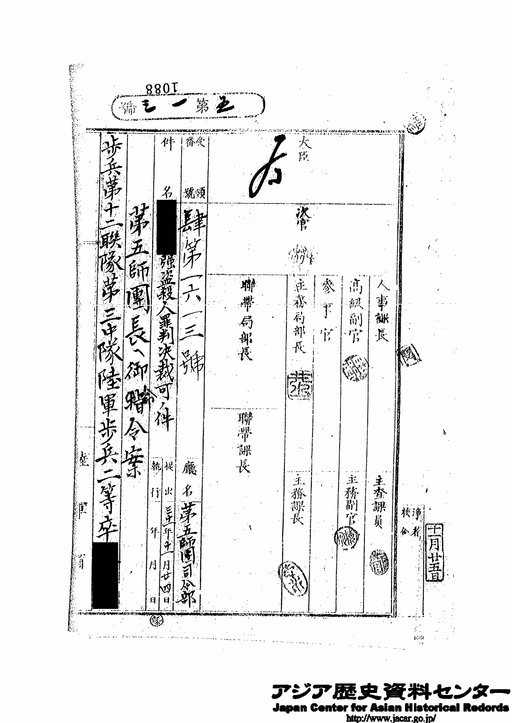 1088
第五三一號
十一月廿五日
淨書
校合
大臣
次官
人事課長
高級副官
參事官
主務局部長
聯帶局部長
主査課員
主務副官
主務課長
聯帶課長
受領番號
肆第一六一三號
件名
強盜殺人罪判決裁可ノ件
廳名
第五師團司令部
提出
三十一年十一月廿四日
執行 年 月 日
第五師團長ヘ御指令案
歩兵第十二聯隊第三中隊陸軍歩兵二等卒
陸軍省
アジア歴史資料センター
Japan Center for Asian Historical Records
http://www.jacar.go.jp/